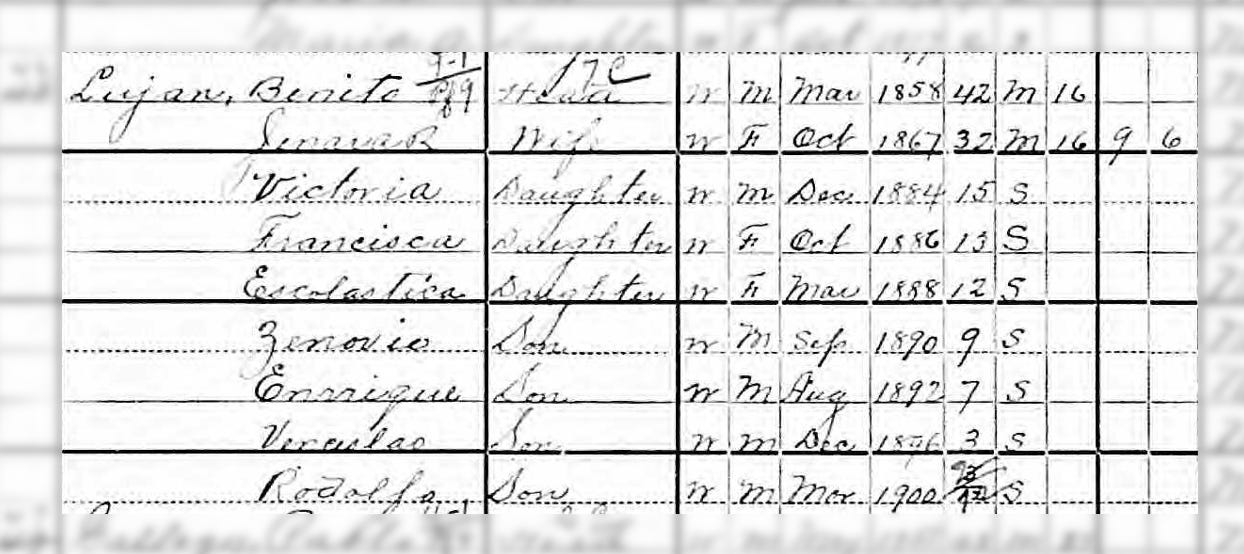 Lujan, Benito Head W M Mar 1858 42 M 16
Wife W F Oct 1867 32 M 16 9 6
Victoria Daughter W M Dec 1884 15 S
Francisca Daughter W F Oct 1886 13 S
Escolastica Daughter W F Mar 1888 12 S
Zenovio Son W M Sep 1890 9 S
Enrrique Son W M Aug 1892 7 S
Venceslao Son W M Dec 1896 3 S
Rodolfo Son W M Mar 1900 S